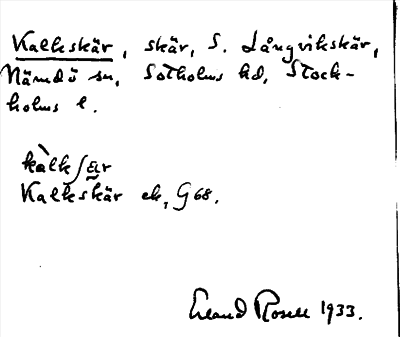 Kalkskär, skär, S. Långvikskär,
Nämdö sn, Sotholms hd, Stock-
holms l.
kàlkʃær
Kalkskär ek, G 68.
Erland Rosell 1933.